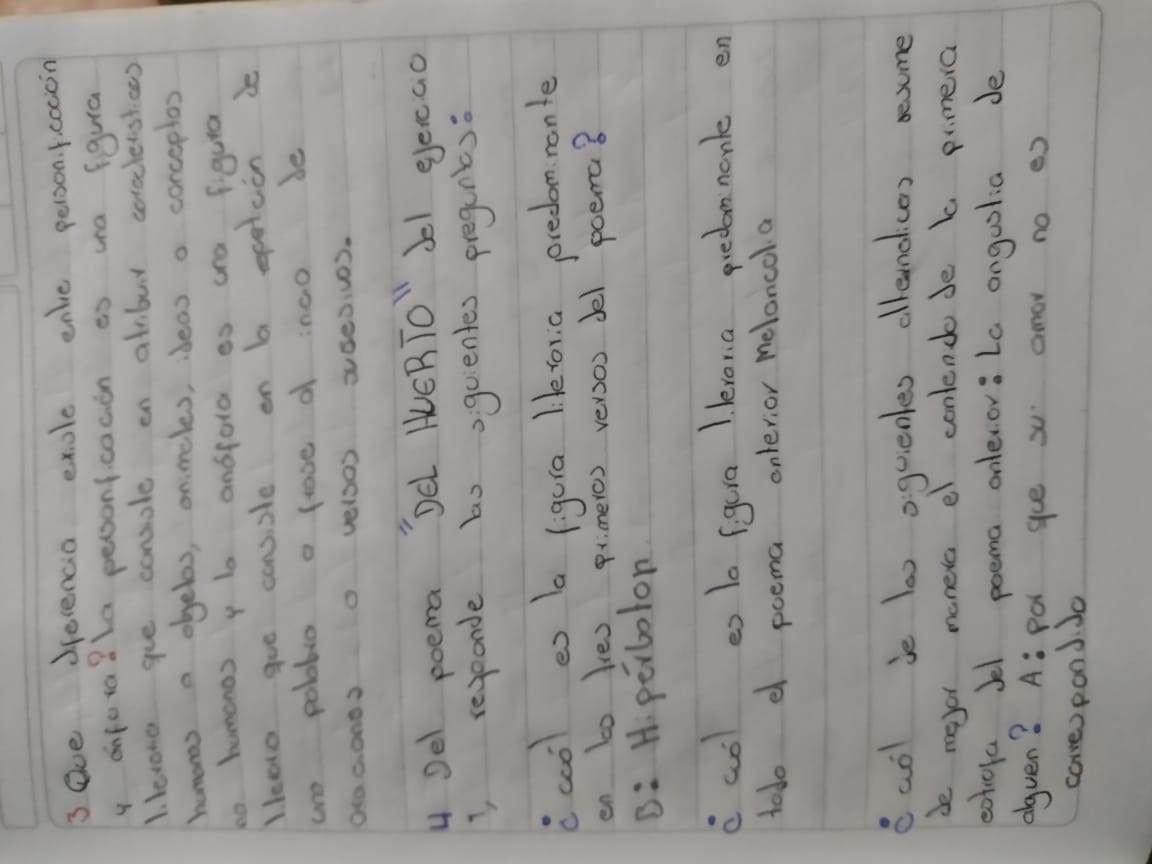 3 Que diferencia existe entre personificación
y ánfora? La personificación es una figura
literaria que consiste en atribuir características
humanas a objetos, animales, ideas o conceptos
no humanos y la anáfora es una figura
literaria que consiste en la repetición de
una palabra o frase al inicio de
oraciones o versos sucesivos.
4 Del poema "DEL HUERTO" del ejercicio
1, responde las siguientes preguntas:
¿cuál es la figura literaria predominante
en los tres primeros versos del poema?
B: Hipérbaton
¿cuál es la figura literaria predominante en
todo el poema anterior Melancolia
¿cuál de las siguientes alternativas resume
de mejor manera el contenido de la primera
estrofa del poema anterior: La angustia de
alguien? A: por que su amor no es
correspondido